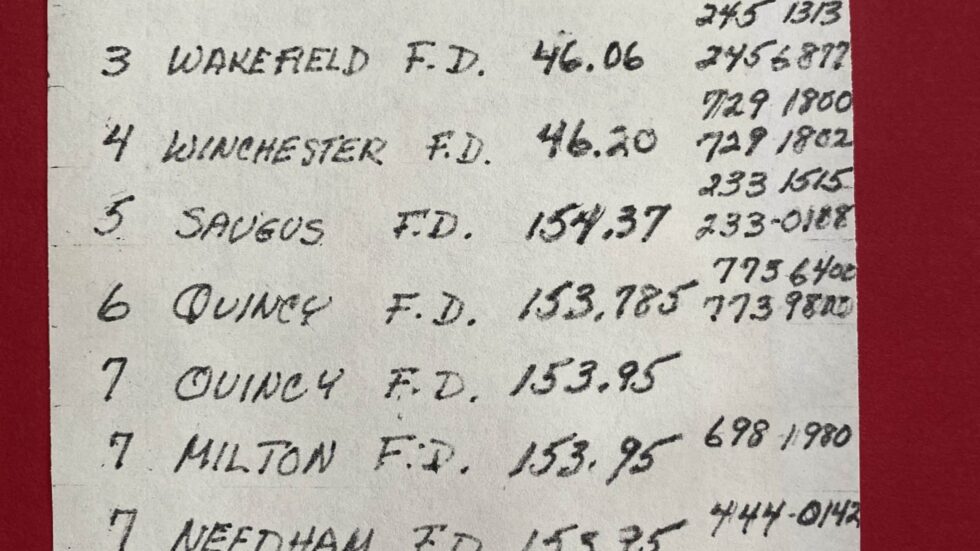 245 1313
3 WAKEFIELD F.D. 46.06 245 6877
729 1800
4 WINCHESTER F.D. 46.20 729 1802
233 1515
5 SAUGUS F.D. 154.37 233-0188
773 6400
6 QUINCY F.D. 153.785 773 9800
7 QUINCY F.D. 153.95
7 MILTON F.D. 153.95 698-1980
444-0142
7 NEEDHAM F.D.